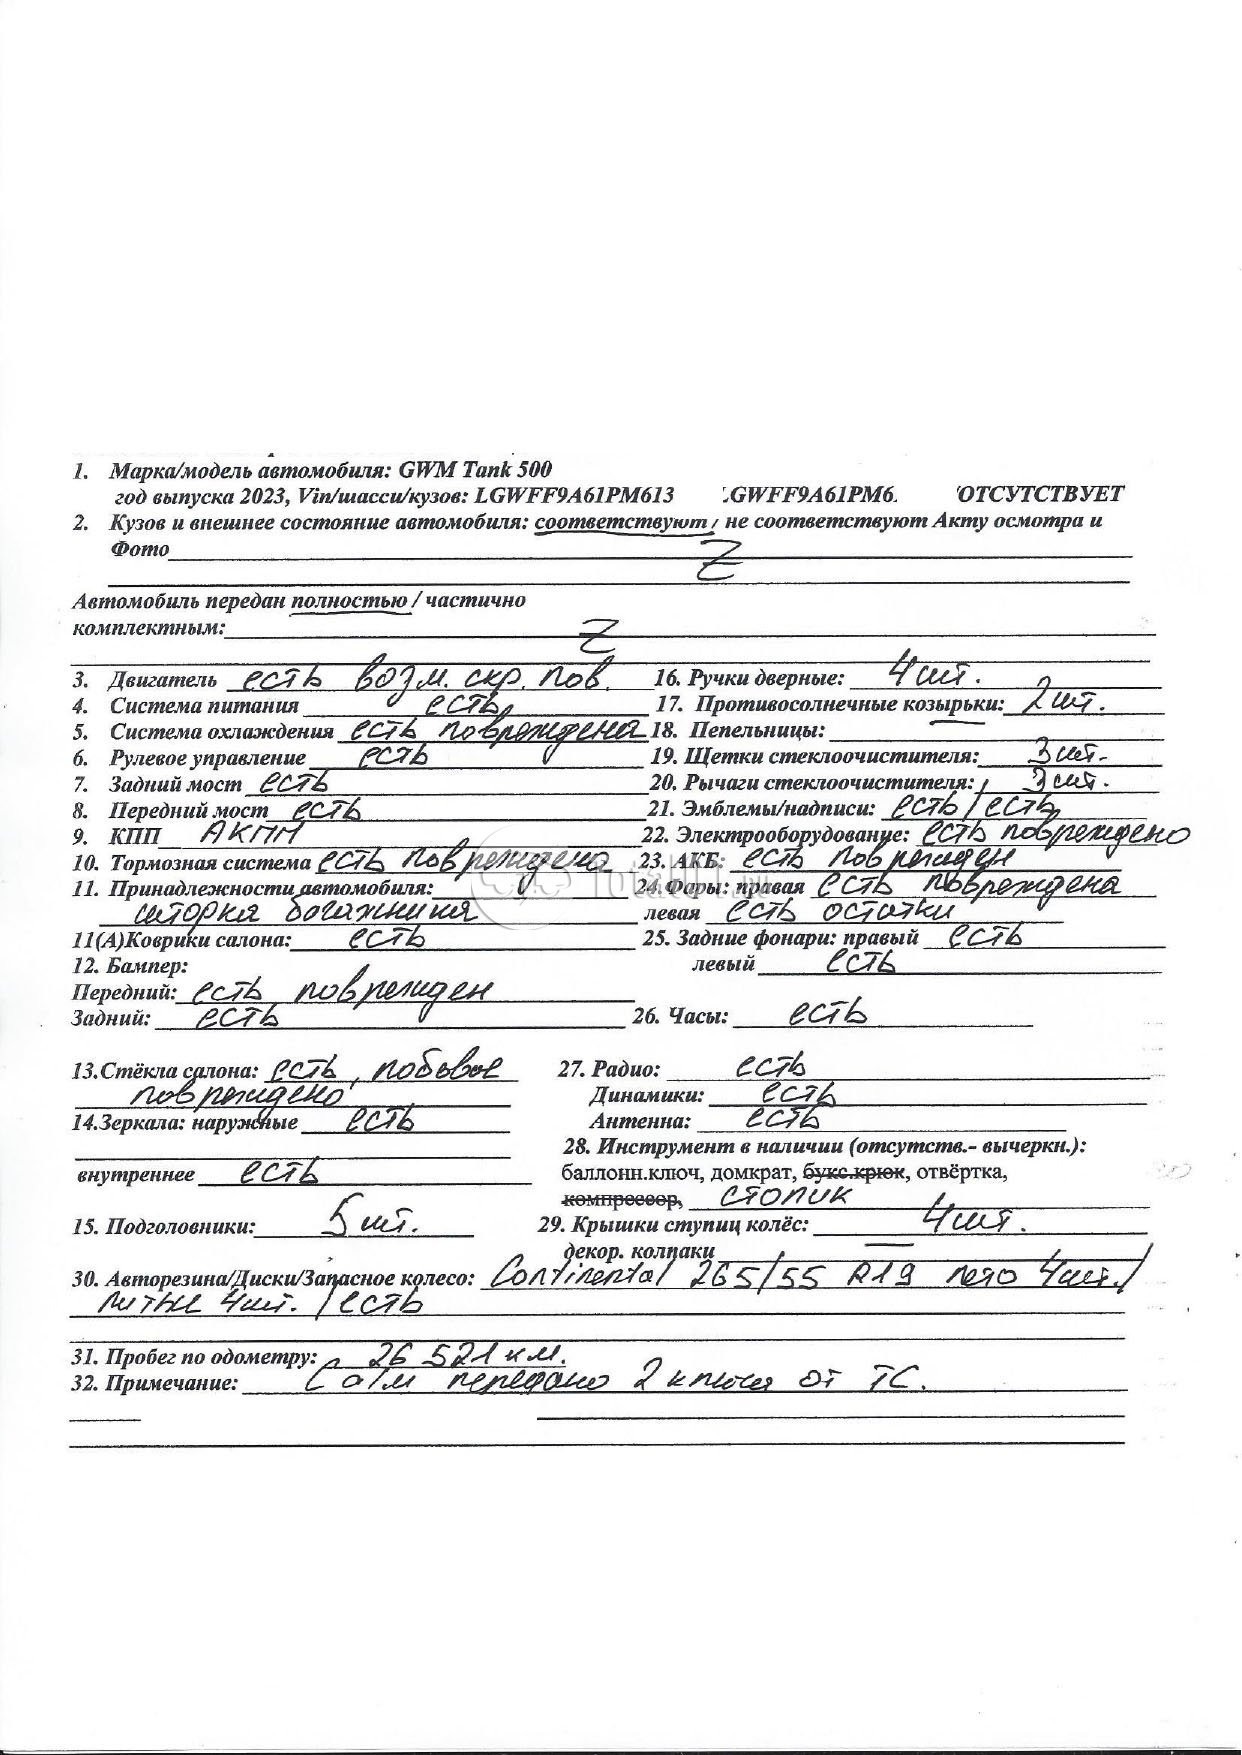 1. Марка/модель автомобиля: GWM Tank 500
год выпуска 2023, Vin/шасси/кузов: LGWFF9A61PM613 .GWFF9A61PM6. ОТСУТСТВУЕТ
2. Кузов и внешнее состояние автомобиля: соответствуют / не соответствуют Акту осмотра и
Фото Z
Автомобиль передан полностью / частично
комплектным: Z
3. Двигатель есть возм. скр. пов. 16. Ручки дверные: 4 шт.
4. Система питания есть 17. Противосолнечные козырьки: 2 шт.
5. Система охлаждения есть повреждена 18. Пепельницы: —
6. Рулевое управление есть 19. Щетки стеклоочистителя: 3 шт.
7. Задний мост есть 20. Рычаги стеклоочистителя: 3 шт.
8. Передний мост есть 21. Эмблемы/надписи: есть / есть
9. КПП АКПП 22. Электрооборудование: есть повреждено
10. Тормозная система есть повреждено 23. АКБ: есть поврежден
11. Принадлежности автомобиля: 24. Фары: правая есть повреждена
шторка багажника левая есть остатки
11(А)Коврики салона: есть 25. Задние фонари: правый есть
12. Бампер: левый есть
Передний: есть поврежден
Задний: есть 26. Часы: есть
13.Стёкла салона: есть, лобовое 27. Радио: есть
повреждено Динамики: есть
14.Зеркала: наружные есть Антенна: есть
28. Инструмент в наличии (отсутств.- вычеркн.):
внутреннее есть баллонн.ключ, домкрат, букс.крюк, отвёртка,
компрессор, стопик
15. Подголовники: 5 шт. 29. Крышки ступиц колёс: 4 шт.
декор. колпаки —
30. Авторезина/Диски/Запасное колесо: Continental 265/55 R19 лето 4 шт./
литые 4 шт. / есть
31. Пробег по одометру: 26 521 км.
32. Примечание: С а/м передано 2 ключа от ТС.
Total01.ru